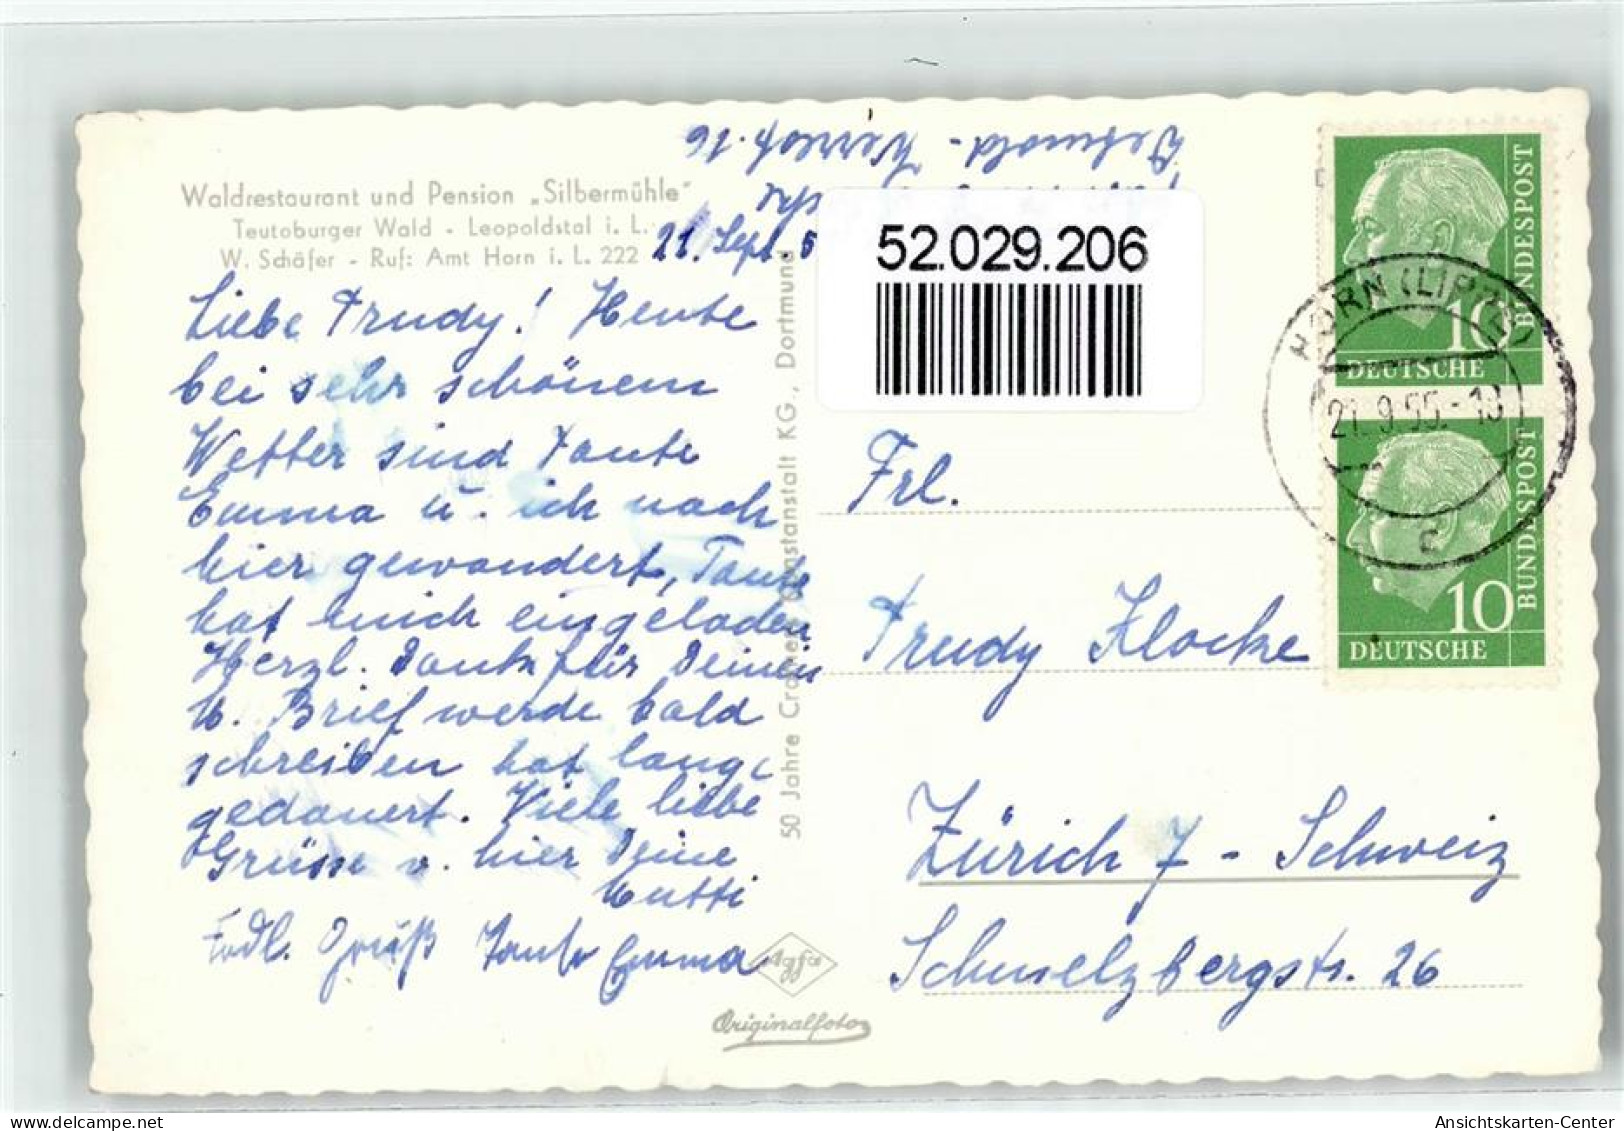 Waldrestaurant und Pension „Silbermühle"
Teutoburger Wald - Leopoldstal i. L.
W. Schäfer - Ruf: Amt Horn i. L. 222
21. Sept. 5
Liebe Trudy! Heute
bei sehr schönem
Wetter sind Tante
Emma u. ich nach
hier gewandert, Tante
hat mich eingeladen
Herzl. Dank für Deinen
l. Brief werde bald
schreiben hat lange
gedauert. Viele liebe
Grüsse v. hier Deine
Mutti
Frdl. Gruß Tante Emma
50 Jahre Cramers Kunstanstalt KG., Dortmund
Agfa
Originalfoto
52.029.206
Frl.
Trudy Klocke
Zürich 7 - Schweiz
Schmelzbergstr. 26
10
DEUTSCHE
BUNDESPOST
HORN (LIPPE)
21.9.55.-18
c
10
DEUTSCHE
BUNDESPOST
Ansichtskarten-Center